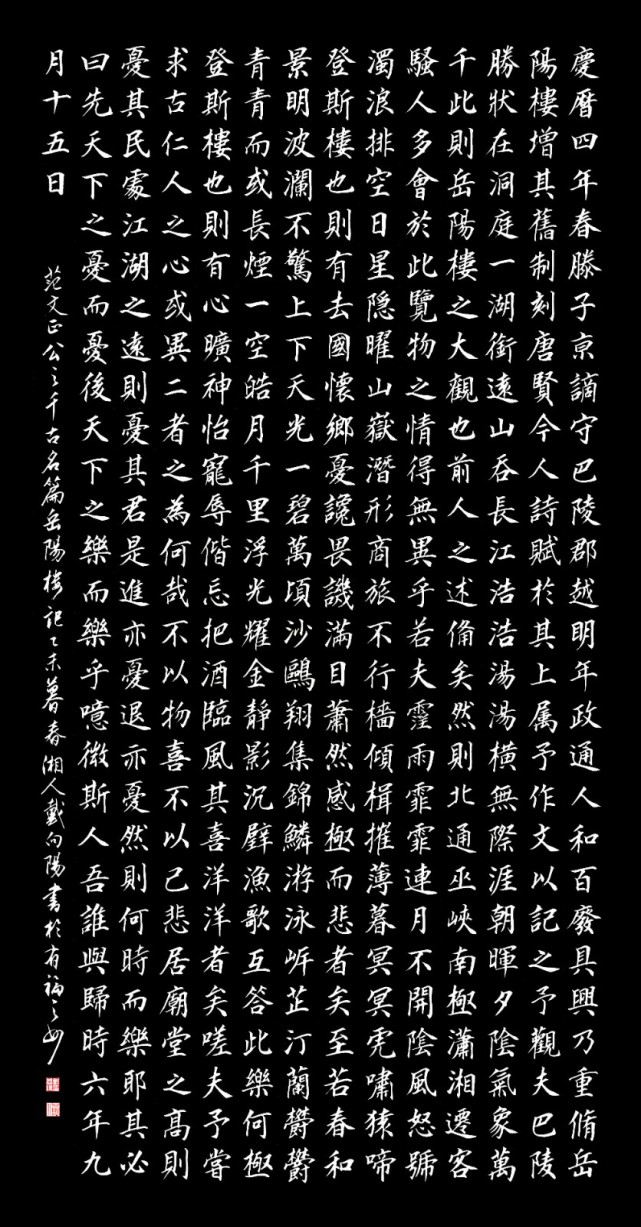 慶曆四年春滕子京謫守巴陵郡越明年政通人和百廢具興乃重脩岳
陽樓增其舊制刻唐賢今人詩賦於其上属予作文以記之予觀夫巴陵
勝狀在洞庭一湖銜遠山吞長江浩浩湯湯橫無際涯朝暉夕陰氣象萬
千此則岳陽樓之大觀也前人之述俻矣然則北通巫峽南極瀟湘遷客
騷人多會於此覽物之情得無異乎若夫霪雨霏霏連月不開陰風怒號
濁浪排空日星隠曜山嶽潛形商旅不行檣傾楫摧薄暮冥冥虎嘯猿啼
登斯樓也則有去國懷鄉憂讒畏譏滿目蕭然感極而悲者矣至若春和
景明波瀾不驚上下天光一碧萬頃沙鷗翔集錦鱗游泳岸芷汀蘭鬱鬱
青青而或長煙一空皓月千里浮光耀金靜影沉璧漁歌互答此樂何極
登斯樓也則有心曠神怡寵辱偕忘把酒臨風其喜洋洋者矣嗟夫予嘗
求古仁人之心或異二者之為何哉不以物喜不以己悲居廟堂之高則
憂其民處江湖之遠則憂其君是進亦憂退亦憂然則何時而樂耶其必
曰先天下之憂而憂後天下之樂而樂乎噫微斯人吾誰與歸時六年九
月十五日
范文正公之千古名篇岳陽樓記乙未暮春湘人戴向陽書於有福之州